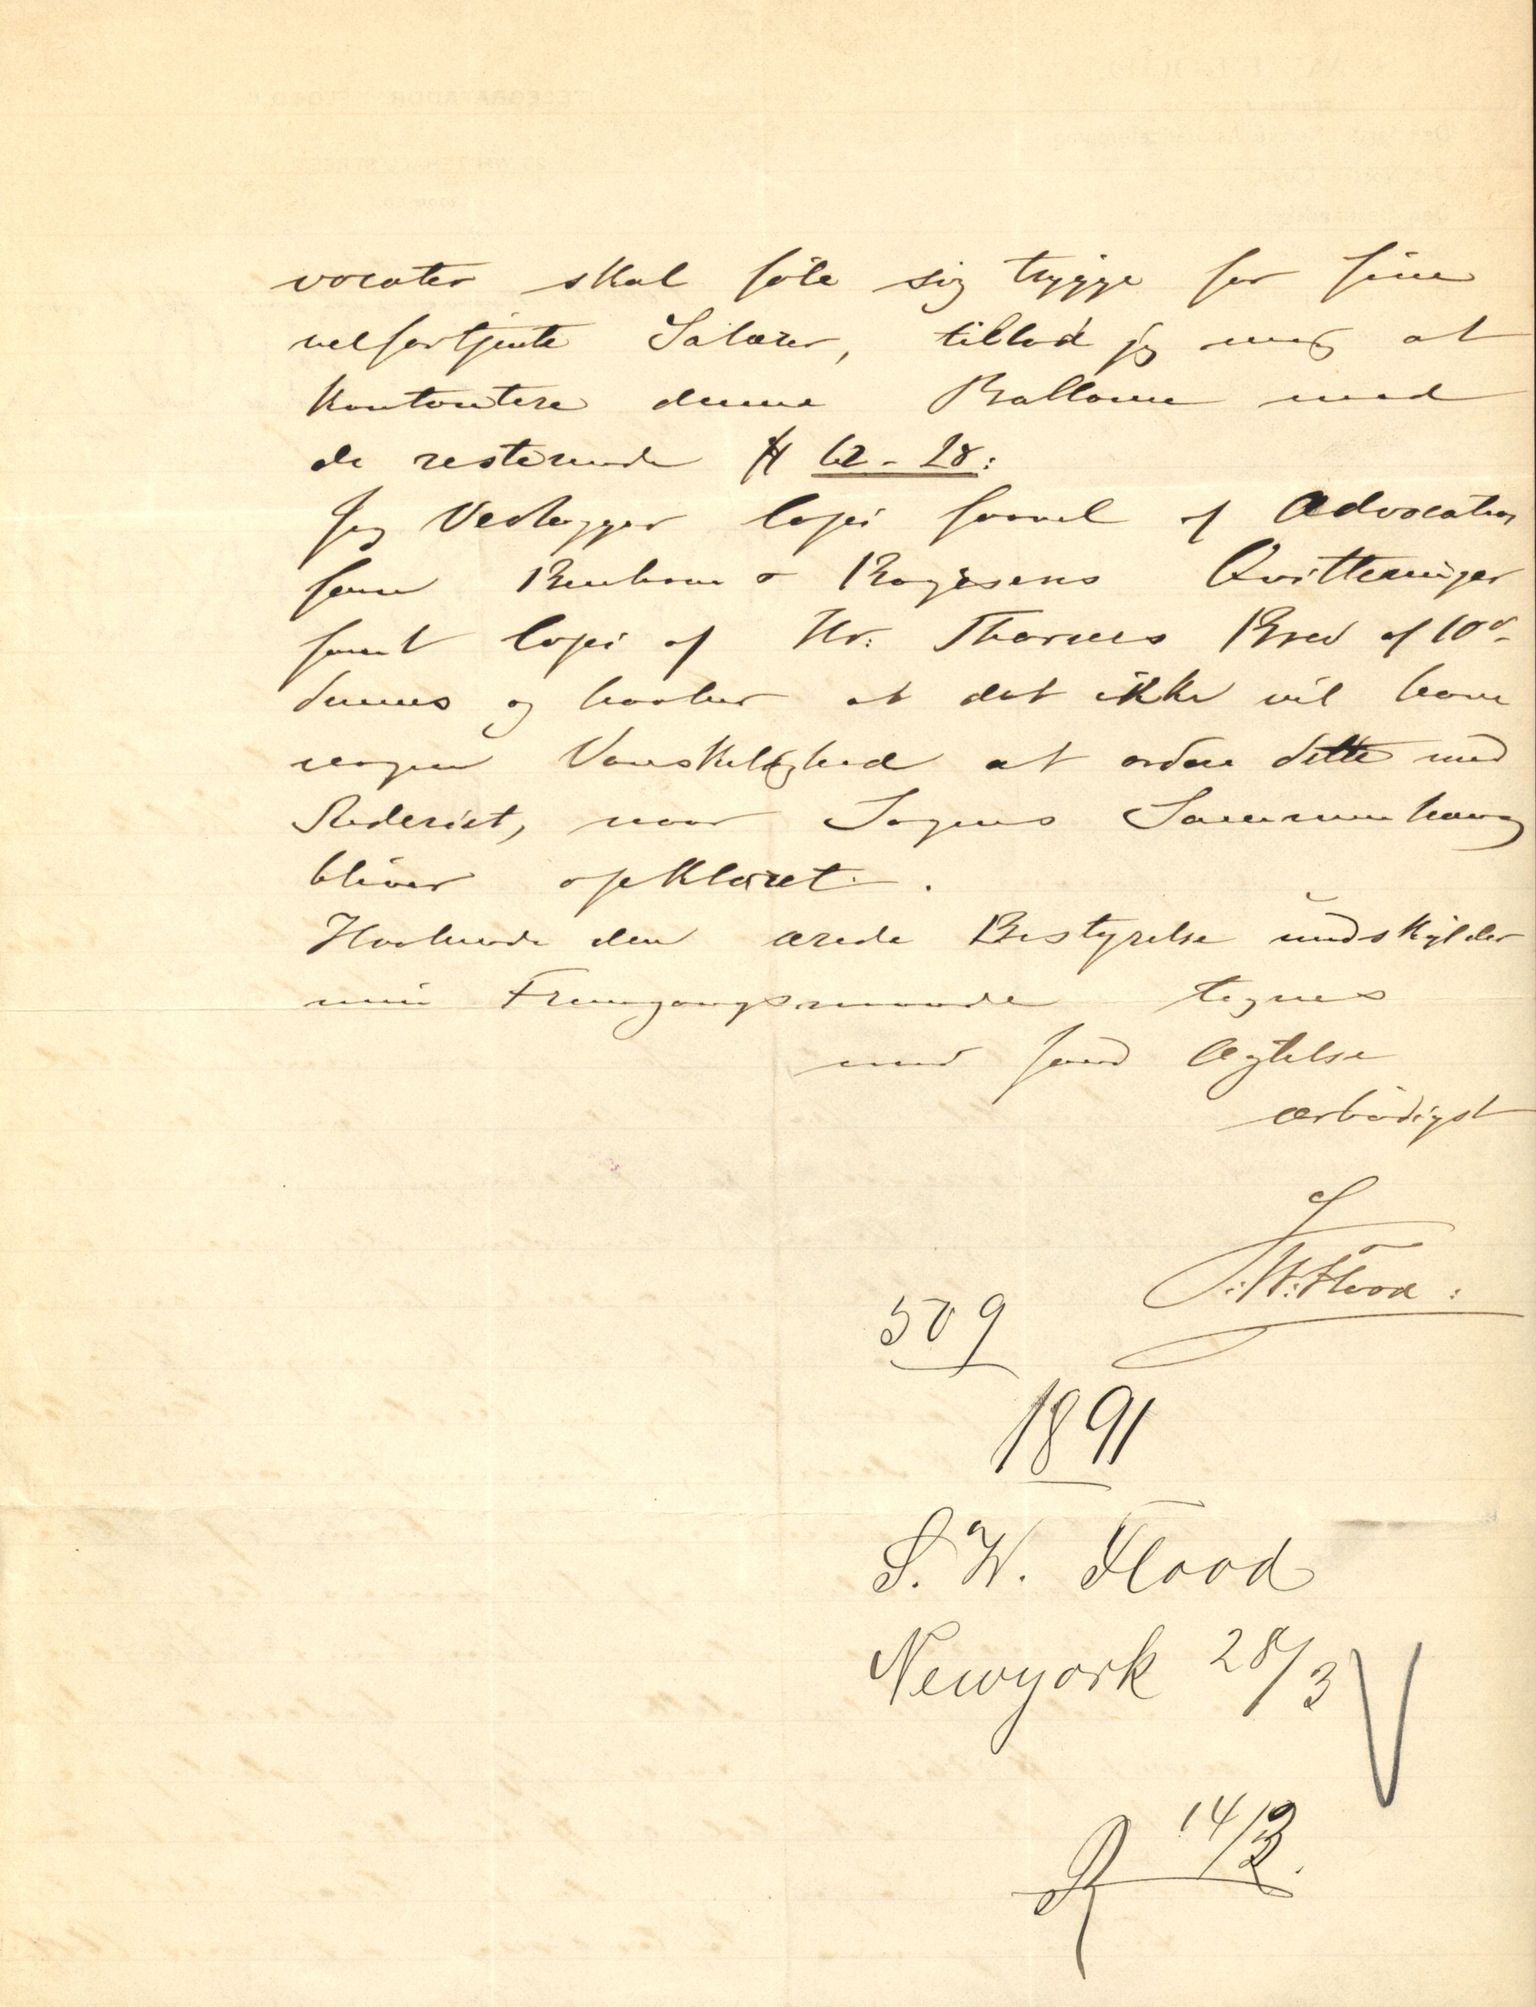 vocater skal føle sig trygge for sine
velfortjente Salærer, tillod jeg mig at
kontentere denne Ballance med
de resterende $ 62-28:
Jeg Vedlægger Copi saavel af Advocaterne
som Benham & Boyesens Qvitteringer
samt Copi af Hr: Thames Brev af 10de
dennes og haaber at det ikke vil have
nogen Vanskelighed at ordne dette med
Rederiet, naar Sagens Sammenhæng
bliver opklaret.
Haabende den ærede Bestyrelse undskylder
min Fremgangsmaade tegnes
med sand Agtelse
ærbødigst
S. W. Flood:
509
1891
S. W. Flood
Newyork 28/3
R 14/3.